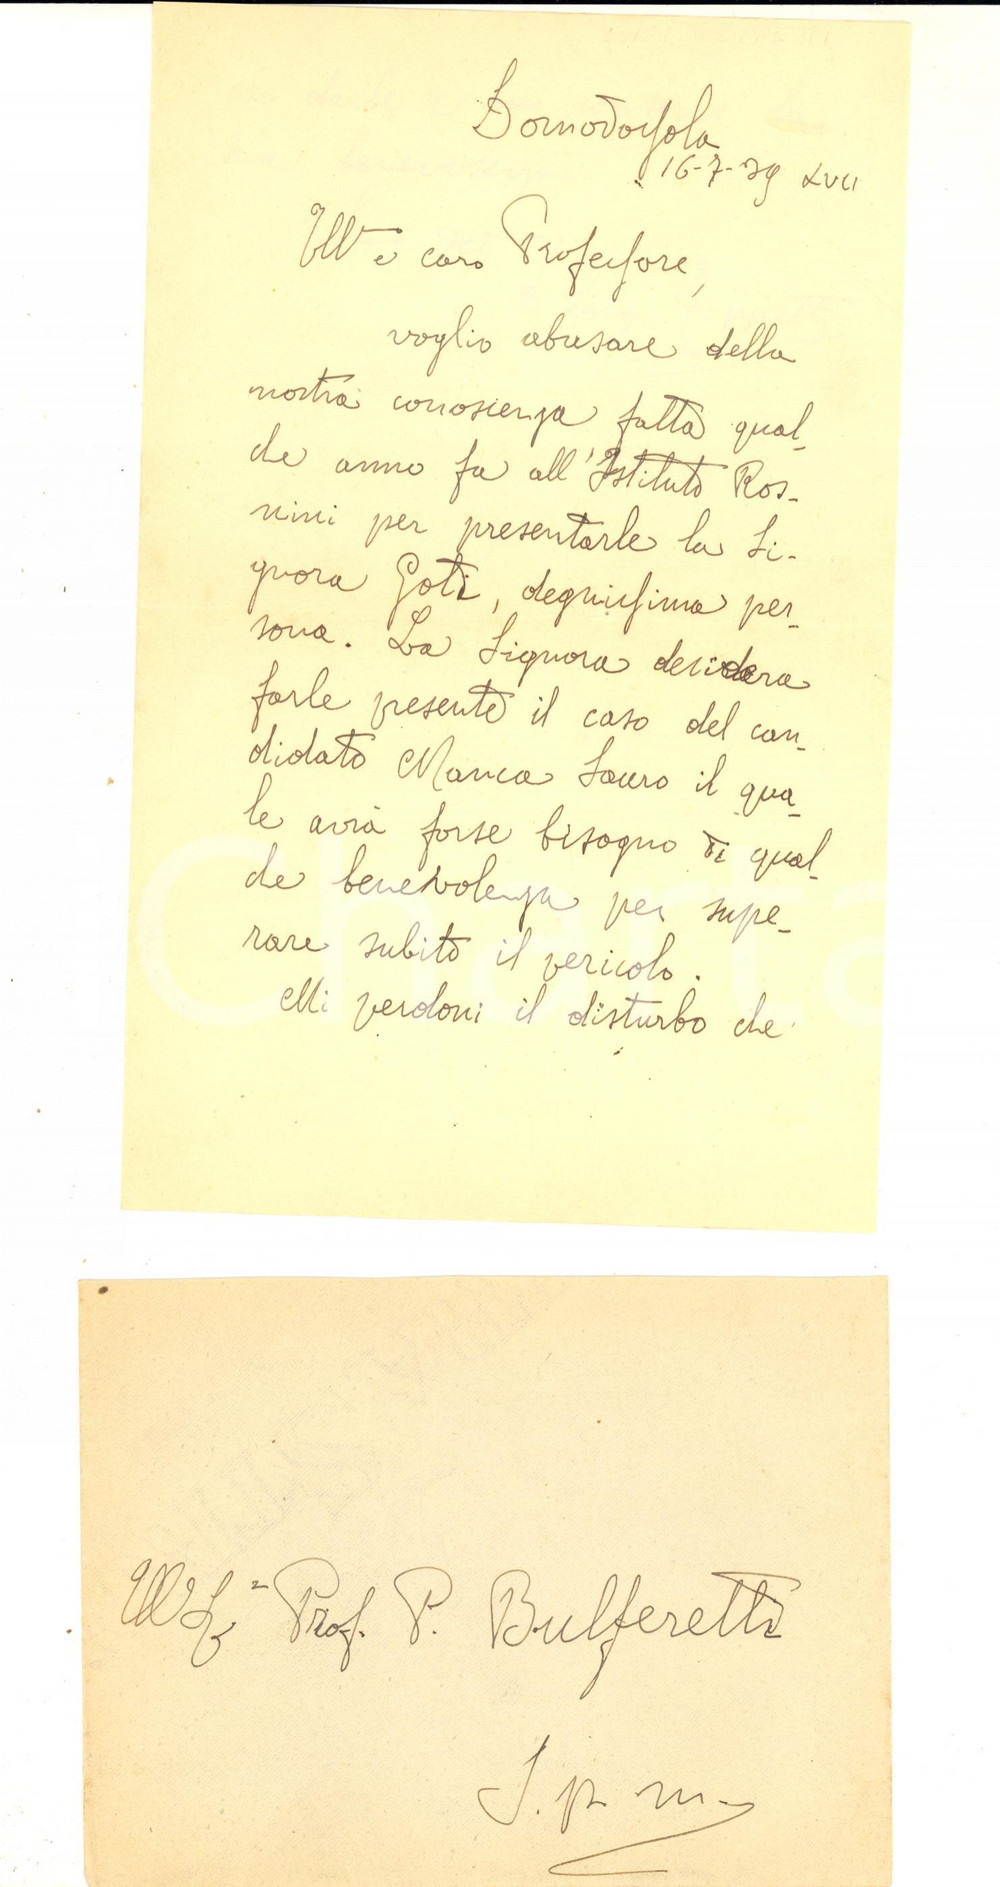 Domodossola
16-7-39 XVII
Ill. e caro Professore,
voglio abusare della
nostra conoscenza fatta qual-
che anno fa all'Istituto Ros-
mini per presentarle la Si-
gnora Goti, degnissima per-
sona. La Signora desidera
farle presente il caso del can-
didato Manca Sauro il qua-
le avrà forse bisogno di qual-
che benevolenza per supe-
rare subito il pericolo.
Mi perdoni il disturbo che
Prof. P. Bulferetti
S. p. m.